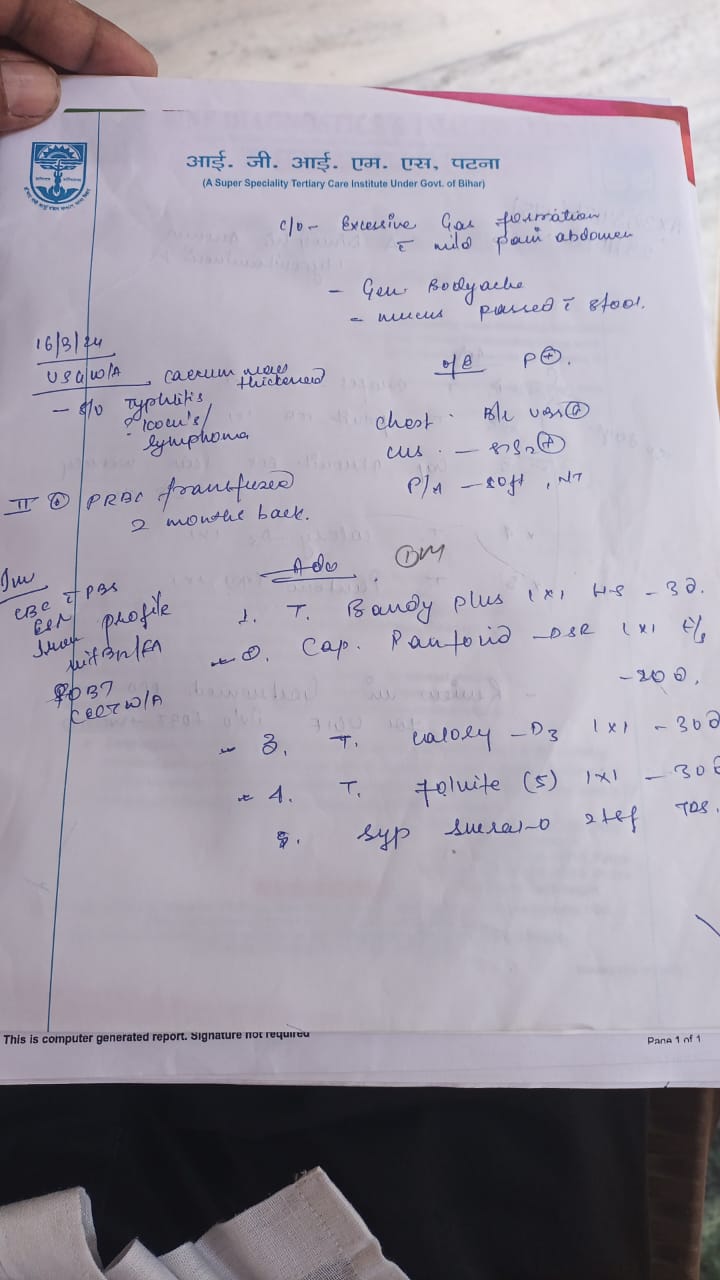 आई. जी. आई. एम. एस, पटना
(A Super Speciality Tertiary Care Institute Under Govt. of Bihar)
c/o - Excessive Gas formation
c̄ mild pain abdomen
- Gen. Bodyache
- mucus passed c̄ stool.
16/3/24
USG W/A caecum wall thickened
- s/o Typhlitis
? Koch's/
lymphoma
O/E P⊕.
Chest. B/L VBS⊕
CVS. - S1S2⊕
P/A - Soft, NT
II ⊕ PRBC transfused
2 months back.
Inv
CBC c̄ PBS
ESR
Iron profile
Vit B12/FA
FOBT
CECT W/A
Adv
1. T. Bandy plus 1x1 HS - 3d.
2. Cap. Pantorid - DSR 1x1 E/S
- 20d.
3. T. - D3 1x1 - 30d
4. T. Folvite (5) 1x1 - 30d
5. Syp Sucral-O 2tsf TDS.
This is computer generated report. Signature not required
Page 1 of 1